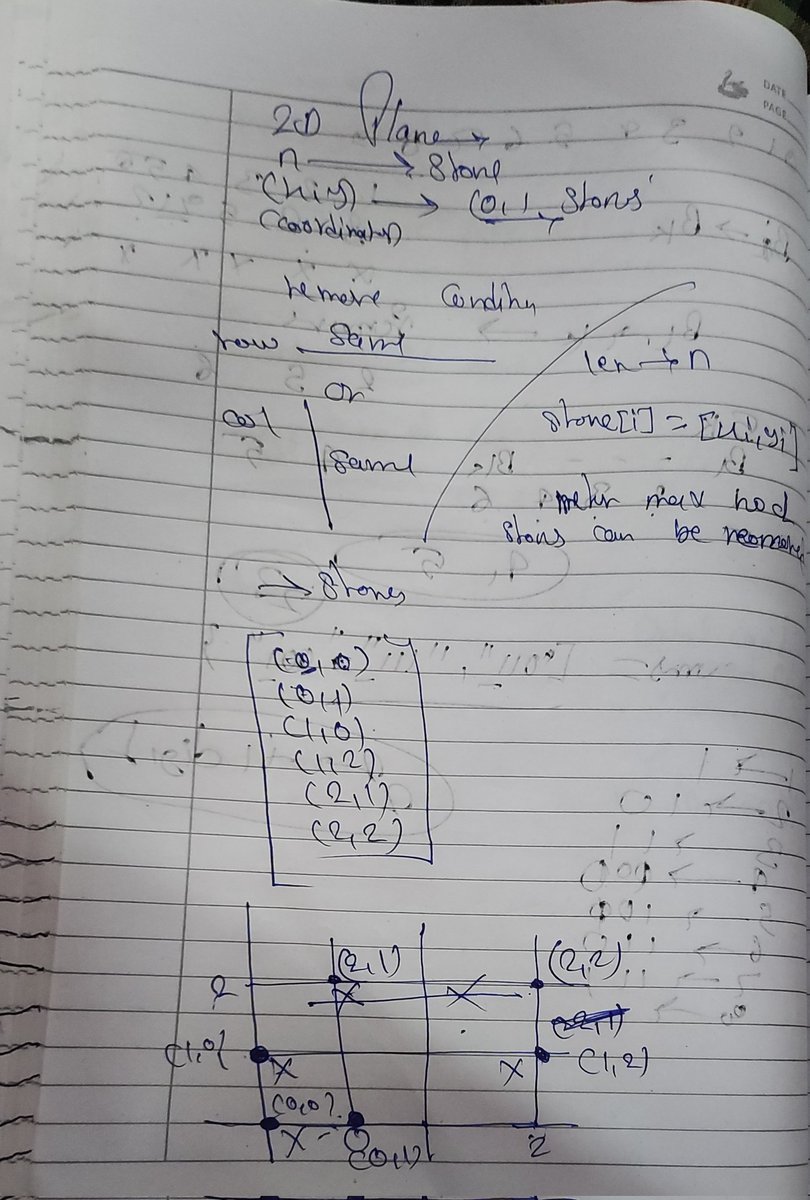 DATE
PAGE
2D Plane →
n → Stone
(xi, yi) → (0,1, Stons
(coordinates)
remove Condition
row same
or
col same
len → n
stone[i] = [xi, yi]
max
stons can be
→ Stones
(0,0)
(0,1)
(1,0)
(1,2)
(2,1)
(2,2)
(2,1) (2,2)
2 X X
(1,0) X X (1,2)
(0,0)
X (0,1) 2